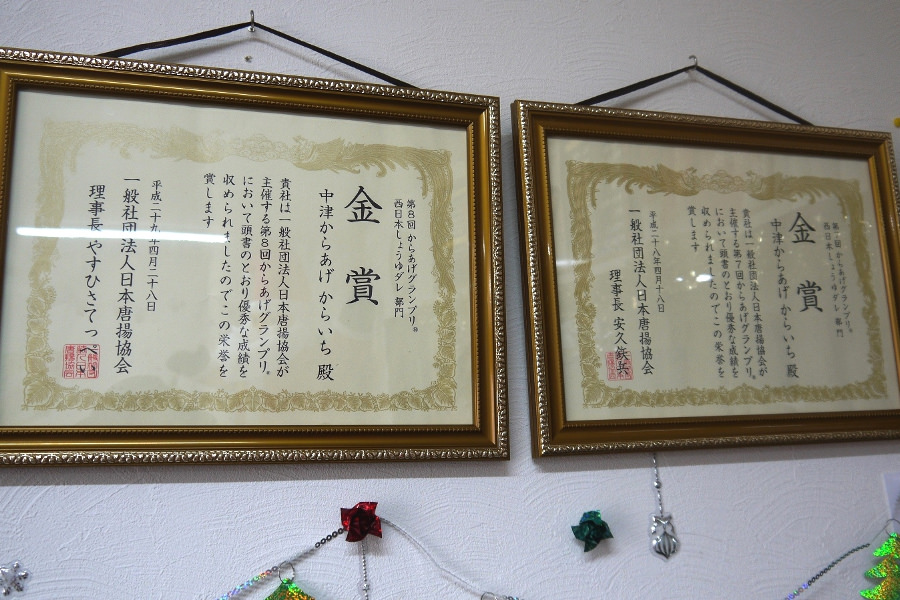 第8回 からあげグランプリ®
西日本しょうゆダレ 部門
金賞
中津からあげ からいち 殿
貴社は一般社団法人日本唐揚協会が
主催する第8回からあげグランプリ®
において頭書のとおり優秀な成績を
収められましたのでこの栄誉を
賞します
平成二十九年四月二十八日
一般社団法人日本唐揚協会
理事長 やすひさてっぺい
第7回 からあげグランプリ®
西日本しょうゆダレ 部門
金賞
中津からあげ からいち 殿
貴社は一般社団法人日本唐揚協会が
主催する第7回からあげグランプリ®
において頭書のとおり優秀な成績を
収められましたのでこの栄誉を
賞します
平成二十八年四月十八日
一般社団法人日本唐揚協会
理事長 安久鉄兵